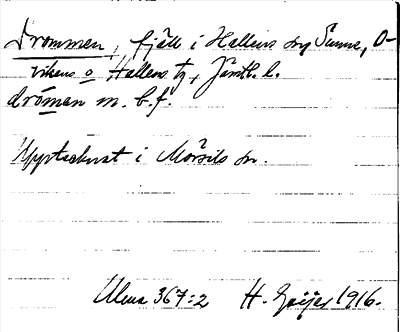 Drommen, fjäll i Hallens sn, Sunne, O-
vikens o Hallens tg, Jämtl. l.
dróman m. b. f.
Upptecknat i Mörsils sn.
Ulma 367:2 H. Geijer 1916.